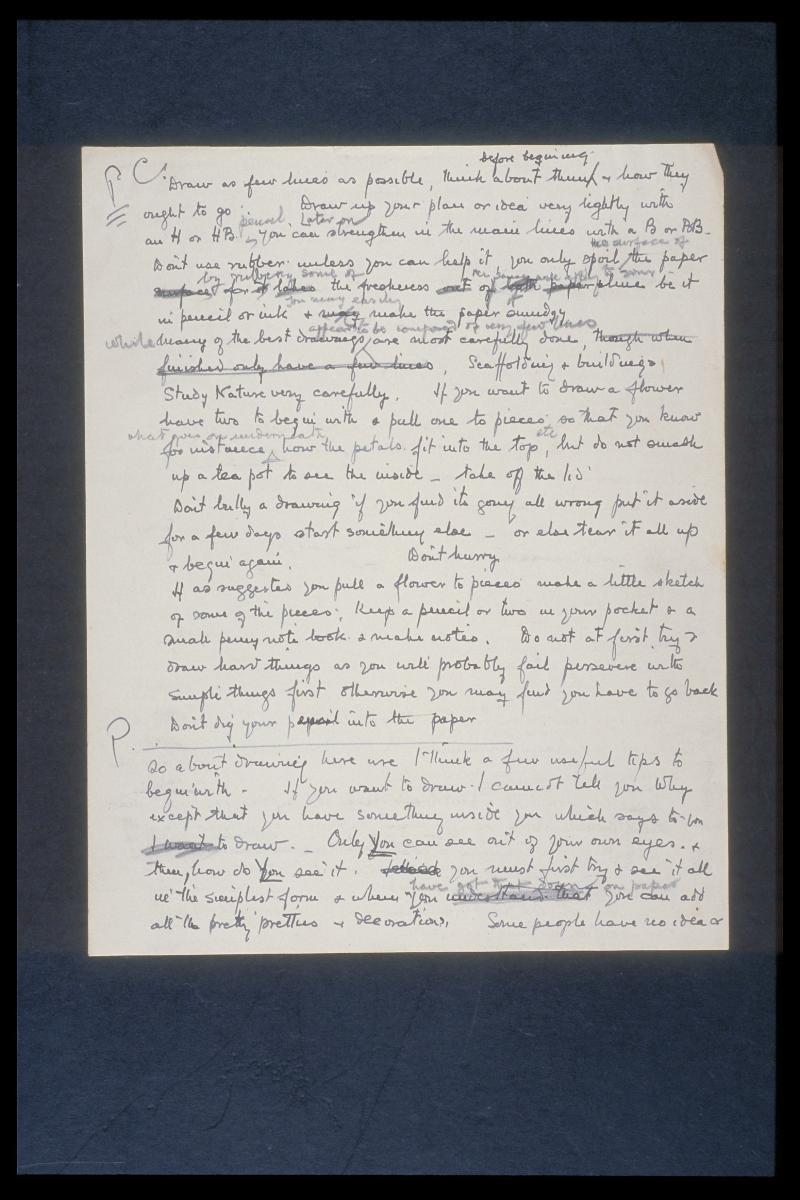 before beginning.
P C Draw as few lines as possible, think about them & how they
ought to go. Draw up your plan or idea very lightly with
pencil Later on
an H or HB. you can strengthen in the main lines with a B or BB.
the surface of
Don't use rubber unless you can help it you only spoil the paper
by rubbing some of
surface for it takes the freshness out of both paper & line be it
you may easily
in pencil or ink & may make the paper smudgy
appear to be composed of very few lines
while many of the best drawings are most carefully done, though when
finished only have a few lines, Scaffolding & buildings
Study Nature very carefully. If you want to draw a flower
have two to begin with & pull one to pieces so that you know
what goes on underneath etc
for instance how the petals fit into the top, but do not smash
up a tea pot to see the inside – take off the lid
Don't bully a drawing if you find its going all wrong put it aside
for a few days start something else – or else tear it all up
& begin again. Don't hurry
If as suggested you pull a flower to pieces make a little sketch
of some of the pieces; Keep a pencil or two in your pocket & a
small penny note book & make notes. Do not at first try &
draw hard things as you will probably fail persevere with
simple things first otherwise you may find you have to go back
Don't dig your pencil into the paper
P. So about drawing here are I think a few useful tips to
begin with - If you want to draw I cannot tell you why
except that you have something inside you which says to you
I want to draw. – Only You can see out of your own eyes. &
then, how do You see it. you must first try & see it all
have got that down on paper
in the simplest form & when you understand that you can add
all the pretty pretties & decorations. Some people have no idea or